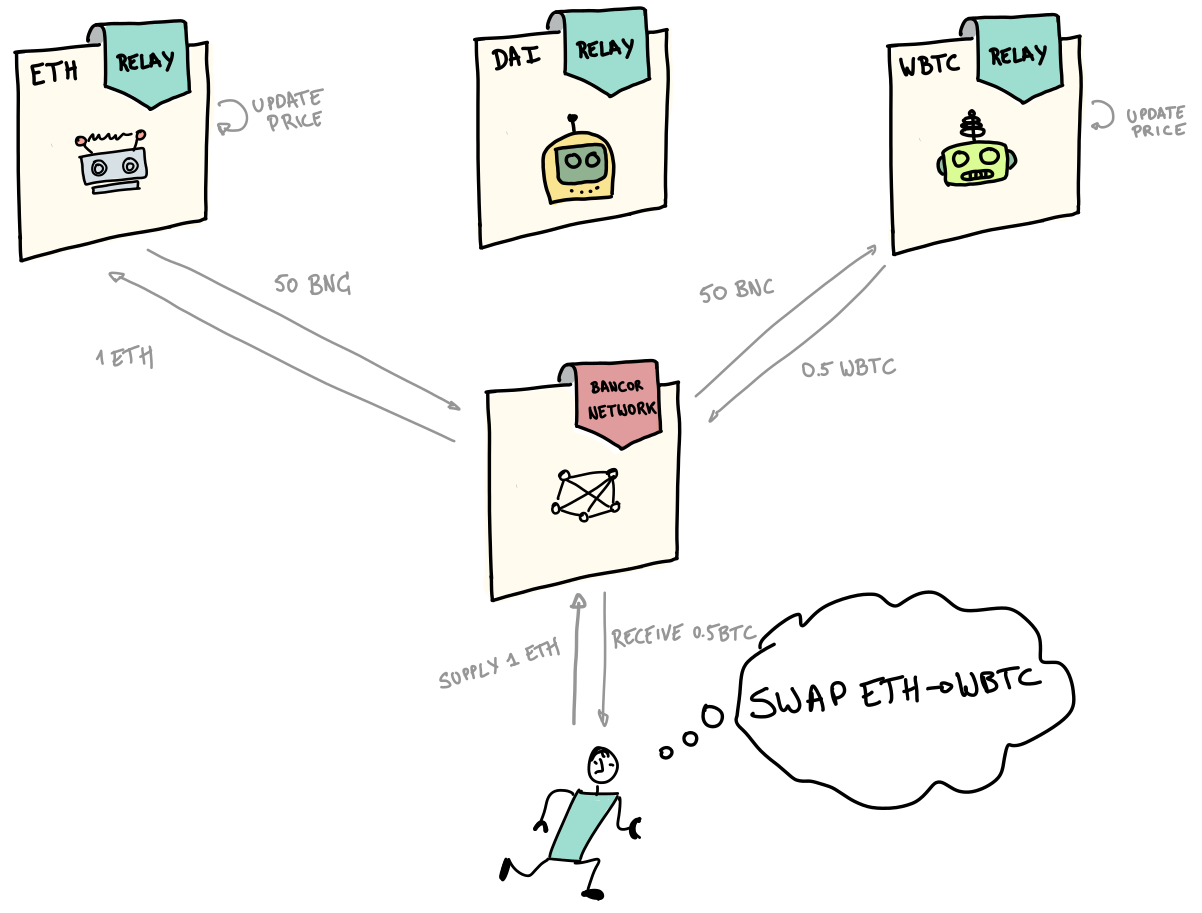 ETH
RELAY
UPDATE
PRICE
DAI
RELAY
WBTC
RELAY
UPDATE
PRICE
50 BNC
1 ETH
50 BNC
0.5 WBTC
BANCOR
NETWORK
SUPPLY 1 ETH
RECEIVE 0.5BTC
SWAP ETH→WBTC